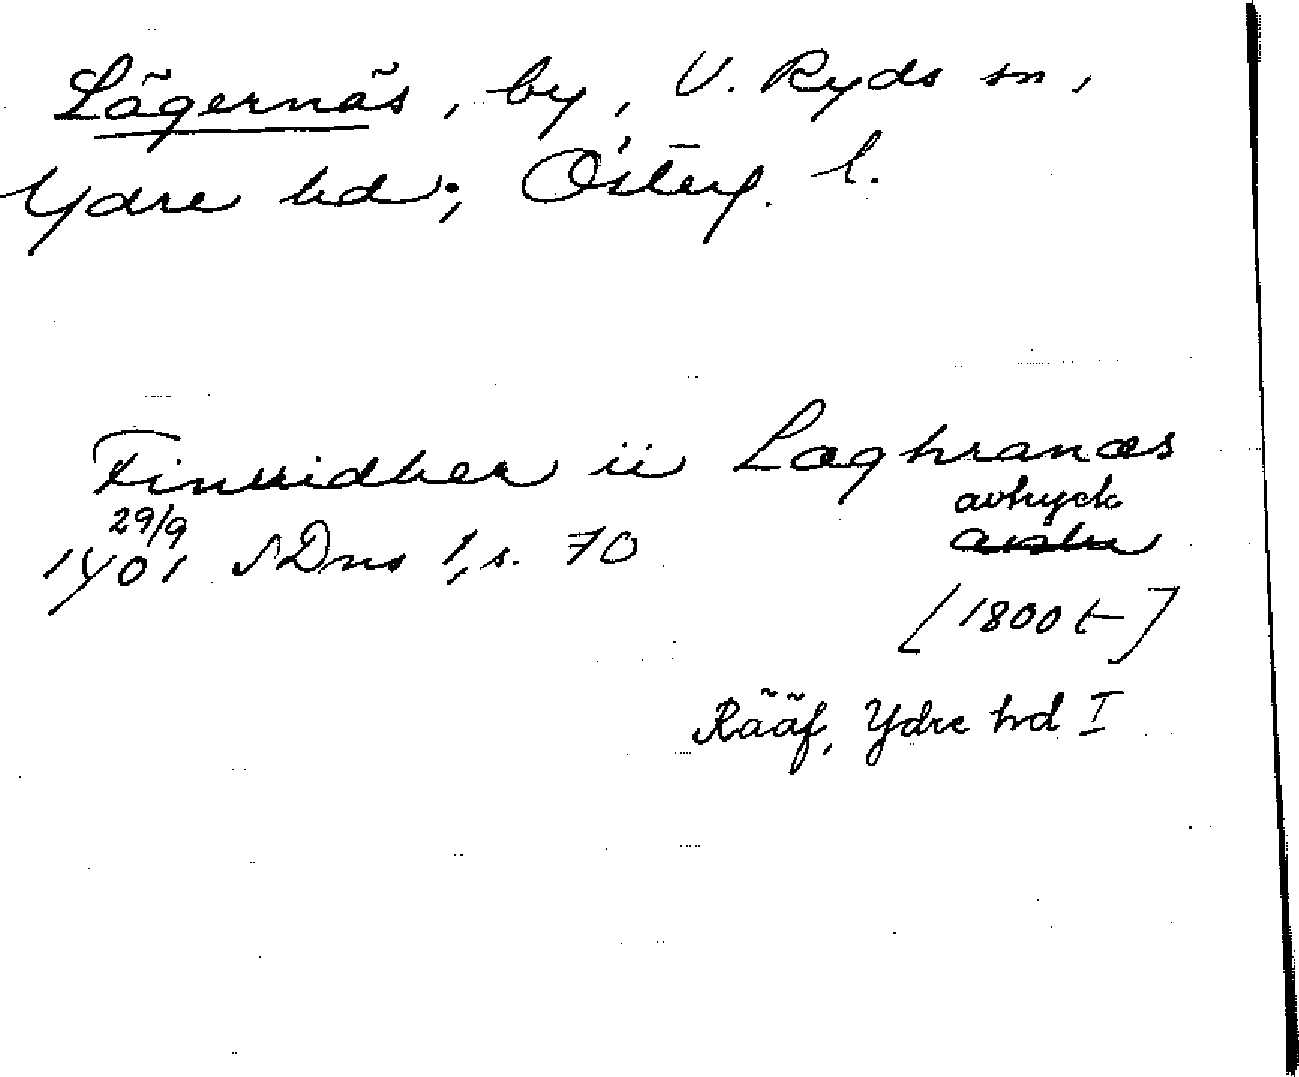 Lägernäs, by, V. Ryds sn,
Ydre hd; Österg. l.
Finuidher ii Laghranæs
29/9 avtryck
1401 SDns 1, s. 70
[1800 t–]
Rääf, Ydre hd I